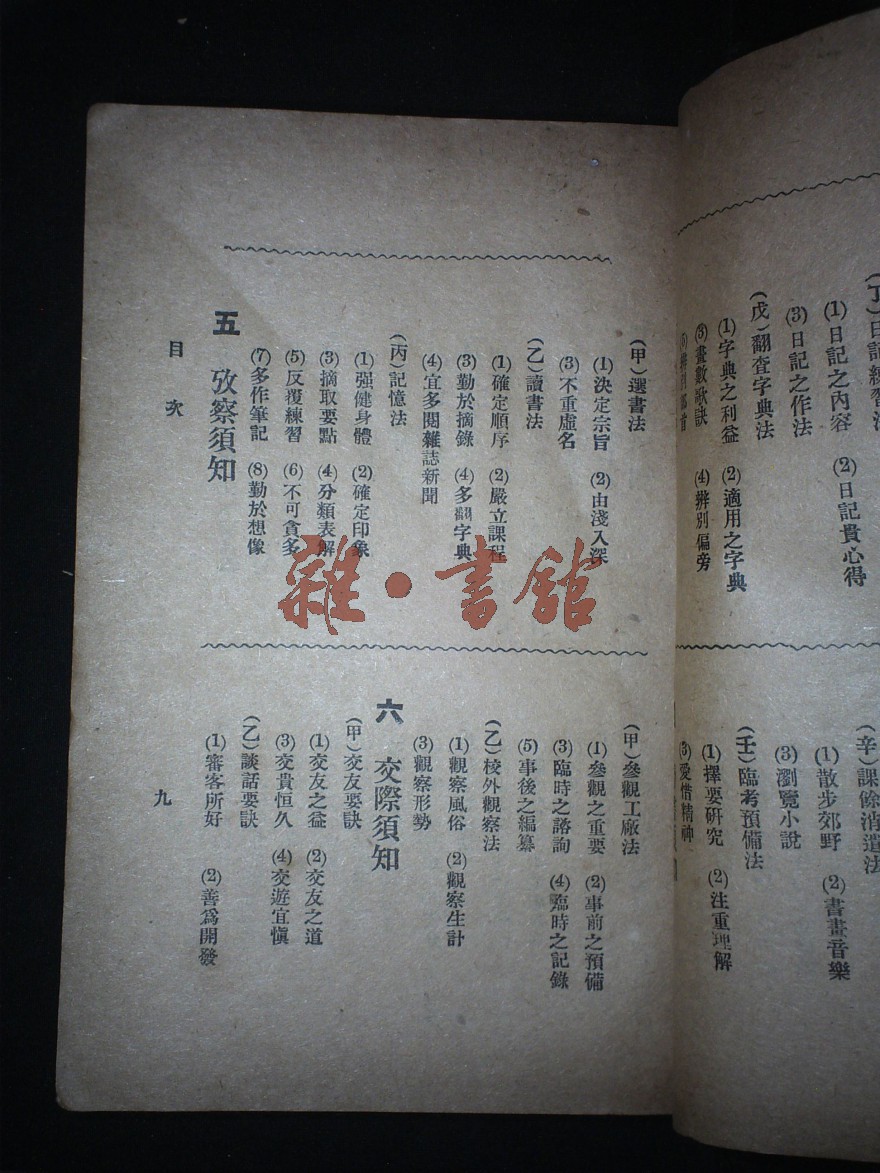 (丁)日記練習法
(1)日記之內容 (2)日記貴心得
(3)日記之作法
(戊)翻查字典法
(1)字典之利益 (2)適用之字典
(3)畫數歌訣 (4)辨別偏旁
(辛)課餘消遣法
(1)散步郊野 (2)書畫音樂
(3)瀏覽小說
(壬)臨考預備法
(1)擇要研究 (2)注重理解
(3)愛惜精神
(甲)選書法
(1)決定宗旨 (2)由淺入深
(3)不重虛名
(乙)讀書法
(1)確定順序 (2)嚴立課程
(3)勤於摘錄 (4)多翻字典
(4)宜多閱雜誌新聞
(丙)記憶法
(1)强健身體 (2)確定印象
(3)摘取要點 (4)分類表解
(5)反覆練習 (6)不可貪多
(7)多作筆記 (8)勤於想像
五 攷察須知
(甲)參觀工廠法
(1)參觀之重要 (2)事前之預備
(3)臨時之諮詢 (4)臨時之記錄
(5)事後之編纂
(乙)校外觀察法
(1)觀察風俗 (2)觀察生計
(3)觀察形勢
六 交際須知
(甲)交友要訣
(1)交友之益 (2)交友之道
(3)交貴恒久 (4)交遊宜愼
(乙)談話要訣
(1)審客所好 (2)善爲開發
目次
九
雜·書館